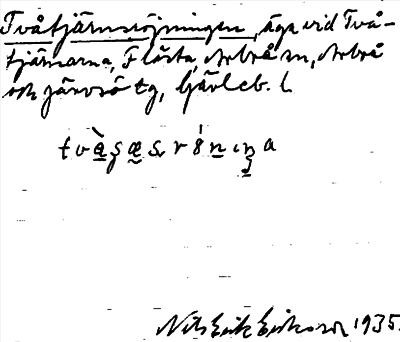 Tvåtjärnsröjningen, äga vid Två-
tjärnarna, Flästa, Arbrå sn, Arbrå
och Järvsö tg, Gävleb. l.
Nils Erik Eriksson 1935.